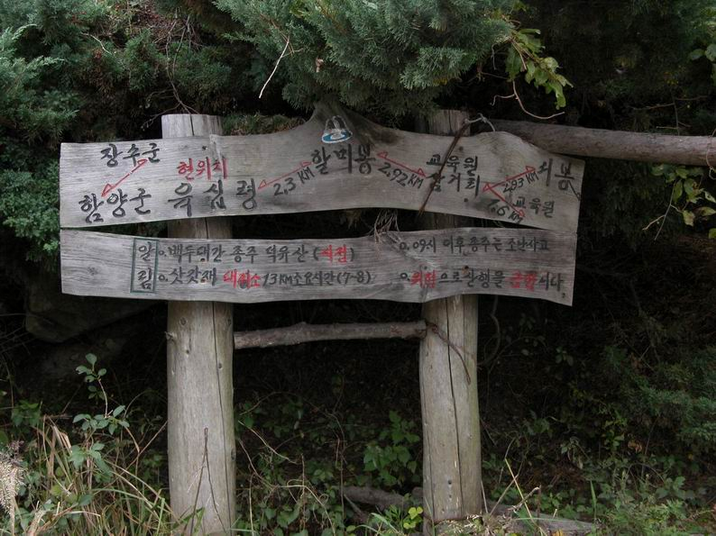 장수군 현위치 할미봉 교육원
함양군 육십령 2.3KM 2.92KM 삼거리 2.93KM 봉
교육원
알 o.백두대간 종주 덕유산 (시점) o.09시 이후 종주는 조난사고
림 o.삿갓재 대피소 13KM소요시간(7-8) o. 으로 산행을 금합시다